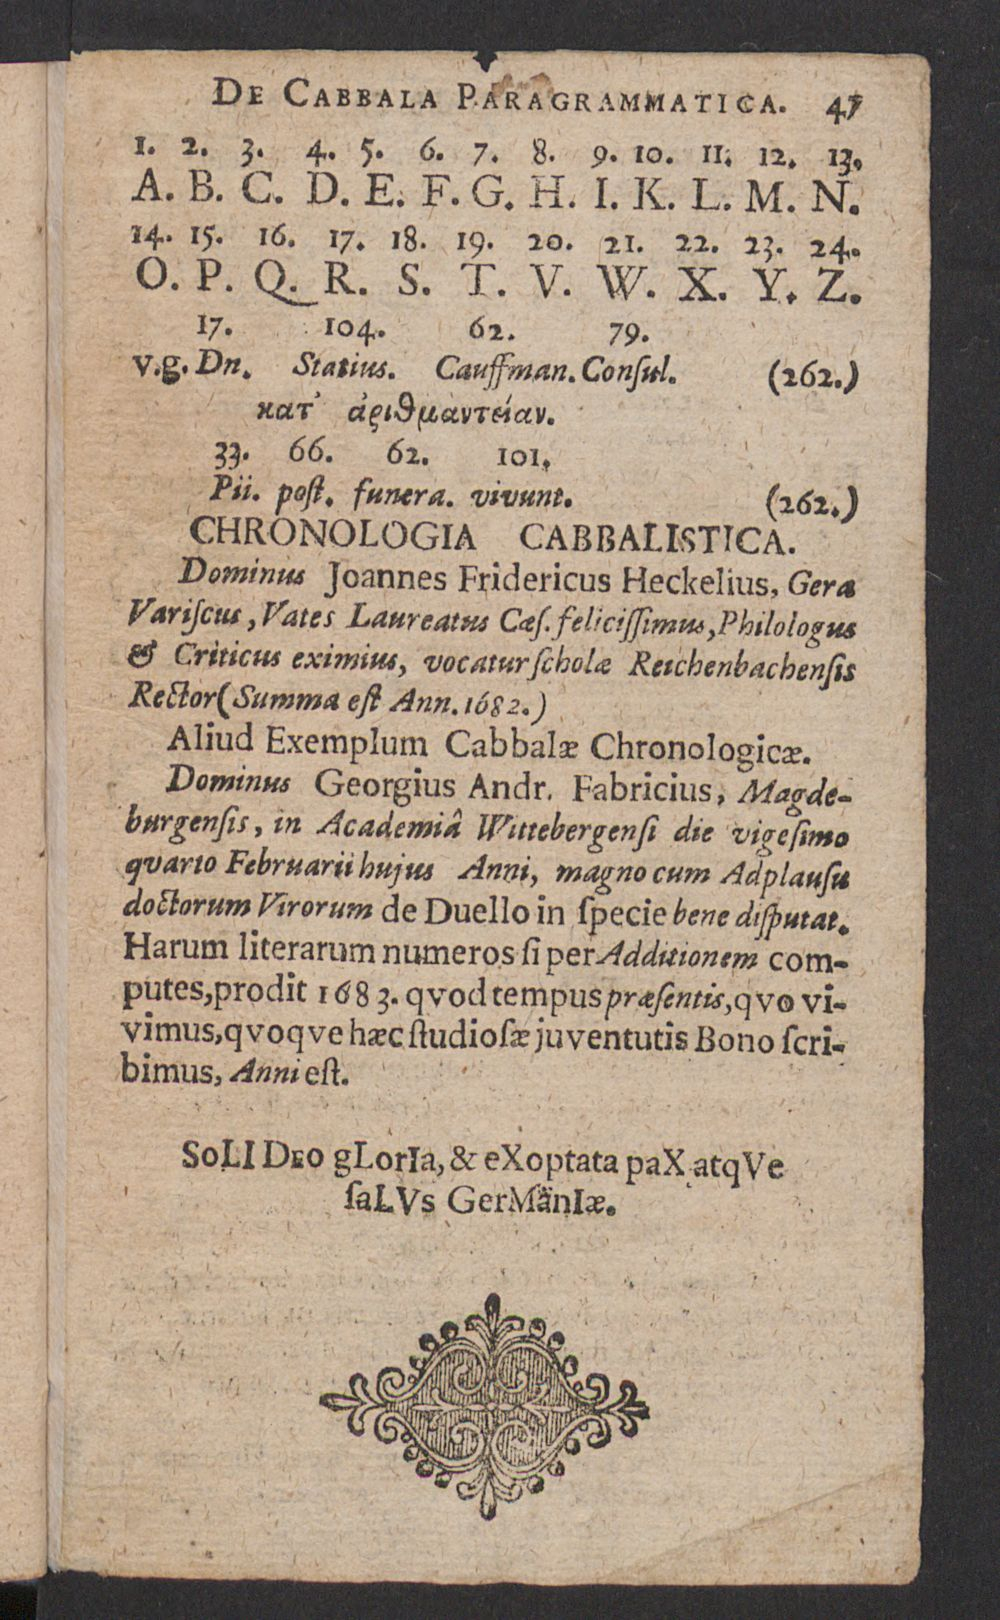 DE CABBALA PARAGRAMMATICA. 47
1. 2. 3. 4. 5. 6. 7. 8. 9. 10. 11. 12. 13.
A. B. C. D. E. F. G. H. I. K. L. M. N.
14. 15. 16. 17. 18. 19. 20. 21. 22. 23. 24.
O. P. Q. R. S. T. V. W. X. Y. Z.
17. 104. 62. 79.
v.g. Dn. Statius. Cauffman. Conſul. (262.)
κατ' ἀριθμαντείαν.
33. 66. 62. 101.
Pii. poſt. funera. vivunt. (262.)
CHRONOLOGIA CABBALISTICA.
Dominus Joannes Fridericus Heckelius, Gera
Variſcus, Vates Laureatus Cæſ. feliciſſimus, Philologus
& Criticus eximius, vocatur ſcholæ Reichenbachenſis
Rector (Summa eſt Ann. 1682.)
Aliud Exemplum Cabbalæ Chronologicæ.
Dominus Georgius Andr. Fabricius, Magde-
burgenſis, in Academiâ Wittebergenſi die vigeſimo
qvarto Februarii hujus Anni, magno cum Adplauſu
doctorum Virorum de Duello in ſpecie bene diſputat.
Harum literarum numeros ſi per Additionem com-
putes, prodit 1683. qvod tempus præſentis, qvo vi-
vimus, qvoqve hæc ſtudioſæ juventutis Bono ſcri-
bimus, Anni eſt.
SoLI DEO gLorIa, & eXoptata paX atqVe
ſaLVs GerManIæ.